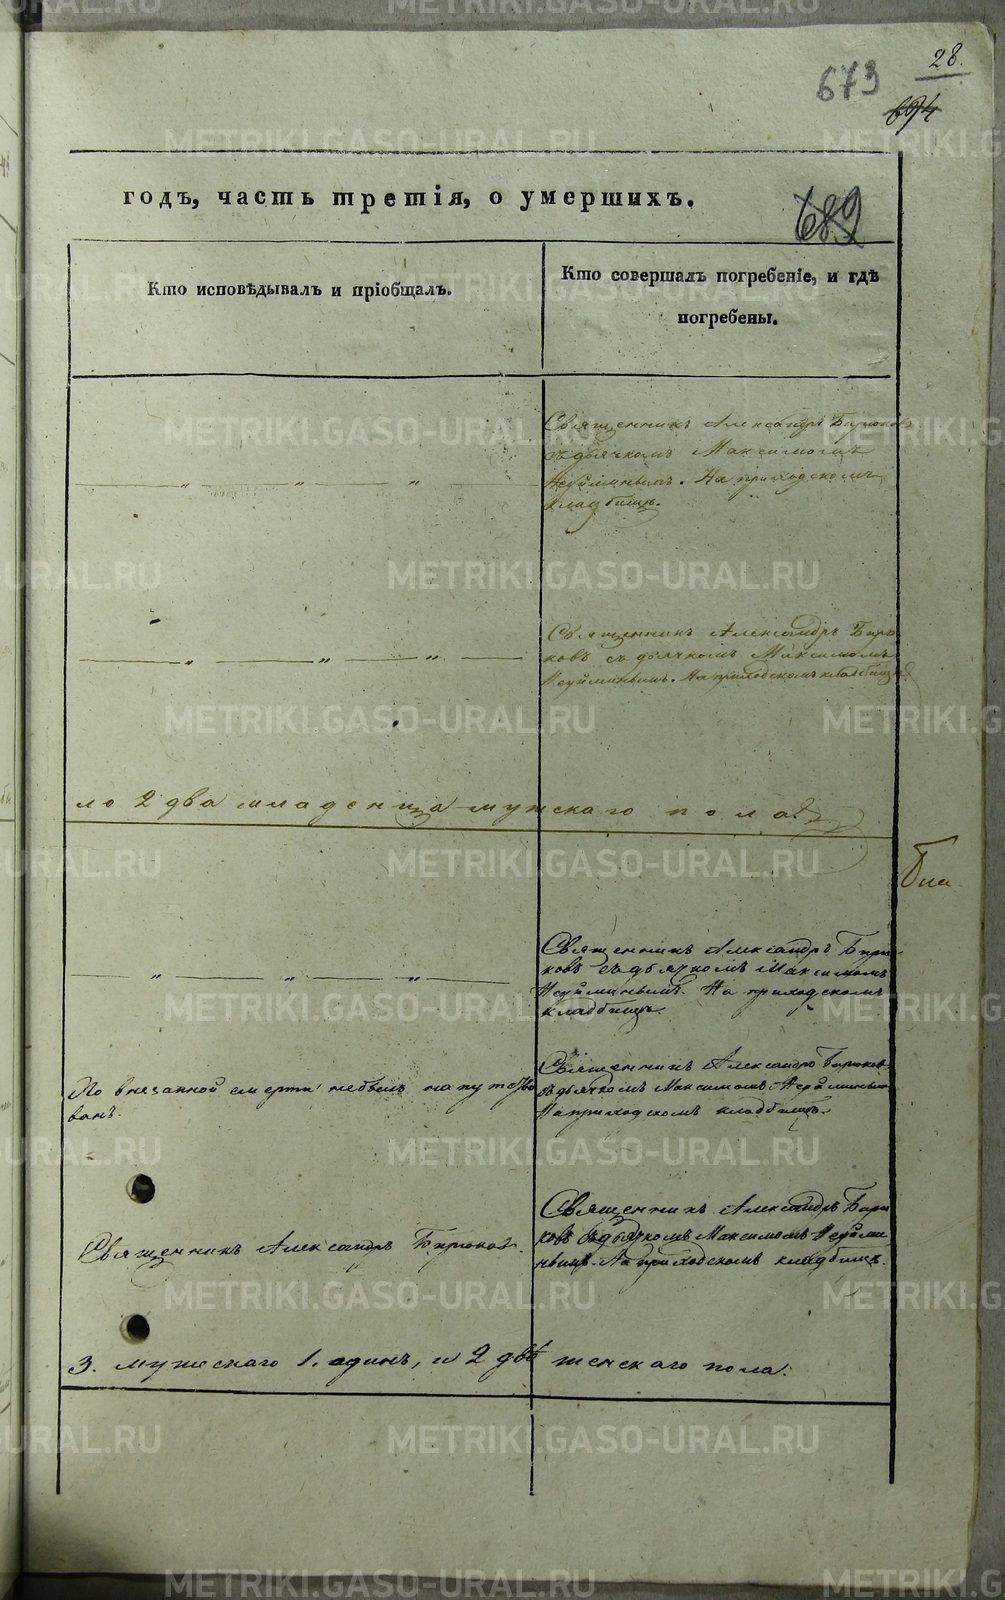 28.
673
694
689
годъ, часть третія, о умершихъ.
Кто исповѣдывалъ и пріобщалъ.
Кто совершалъ погребеніе, и гдѣ
погребены.
Священникъ Александръ Бирюковъ
съ дьячкомъ Максимомъ
Неуйминымъ. На приходскомъ
кладбищѣ.
Священникъ Александръ Бирю
ковъ съ дьячкомъ Максимомъ
Неуйминымъ. На приходскомъ кладбищѣ
ло 2 два младенца мужскаго пола.
Священникъ Александръ Бирю
ковъ съ дьячкомъ Максимомъ
Неуйминымъ. На приходскомъ
кладбищѣ.
По внезапной смерти небылъ напутство
ванъ.
Священникъ Александръ Бирюковъ
съ дьячкомъ Максимомъ Неуйминымъ
На приходскомъ кладбищѣ.
Священникъ Александръ Бирюковъ.
Священникъ Александръ Бирю
ковъ съ дьячкомъ Максимомъ Неуйми
нымъ. На приходскомъ кладбищѣ.
3. мужескаго 1. одинъ, и 2 двѣ женскаго пола.
METRIKI.GASO-URAL.RU